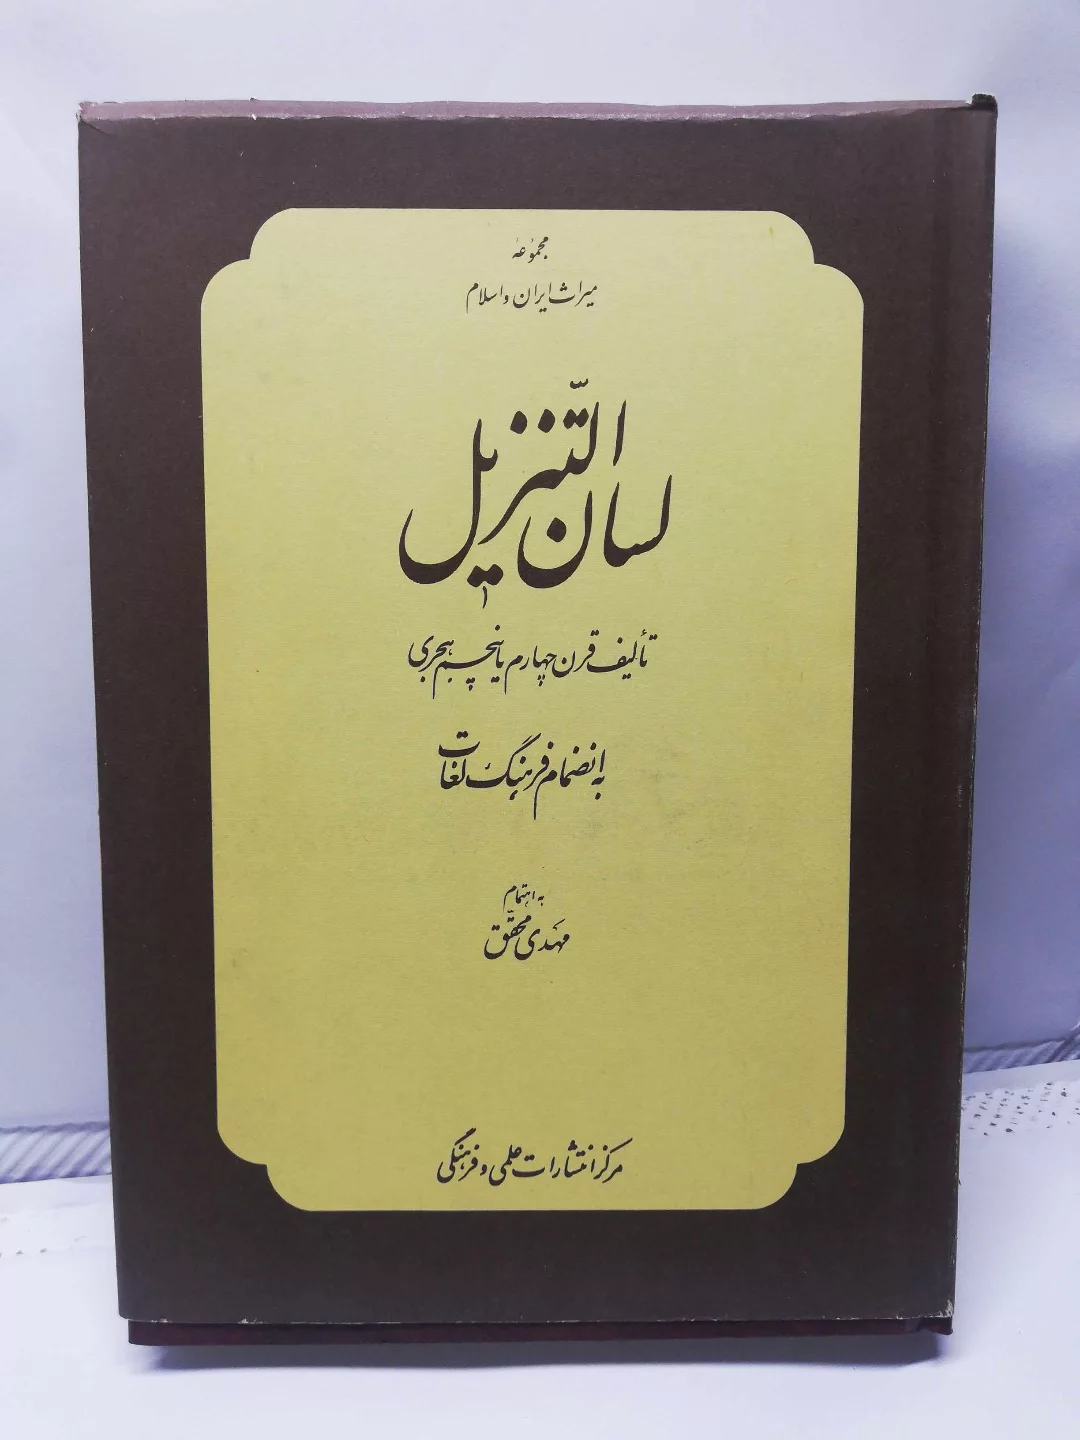 مجموعهٔ
میراث ایران و اسلام
لسان التّنزیل
۱
تألیف قرن چهارم یا پنجم هجری
به انضمام فرهنگ لغات
به اهتمام
مهدی محقّق
مرکز انتشارات علمی و فرهنگی